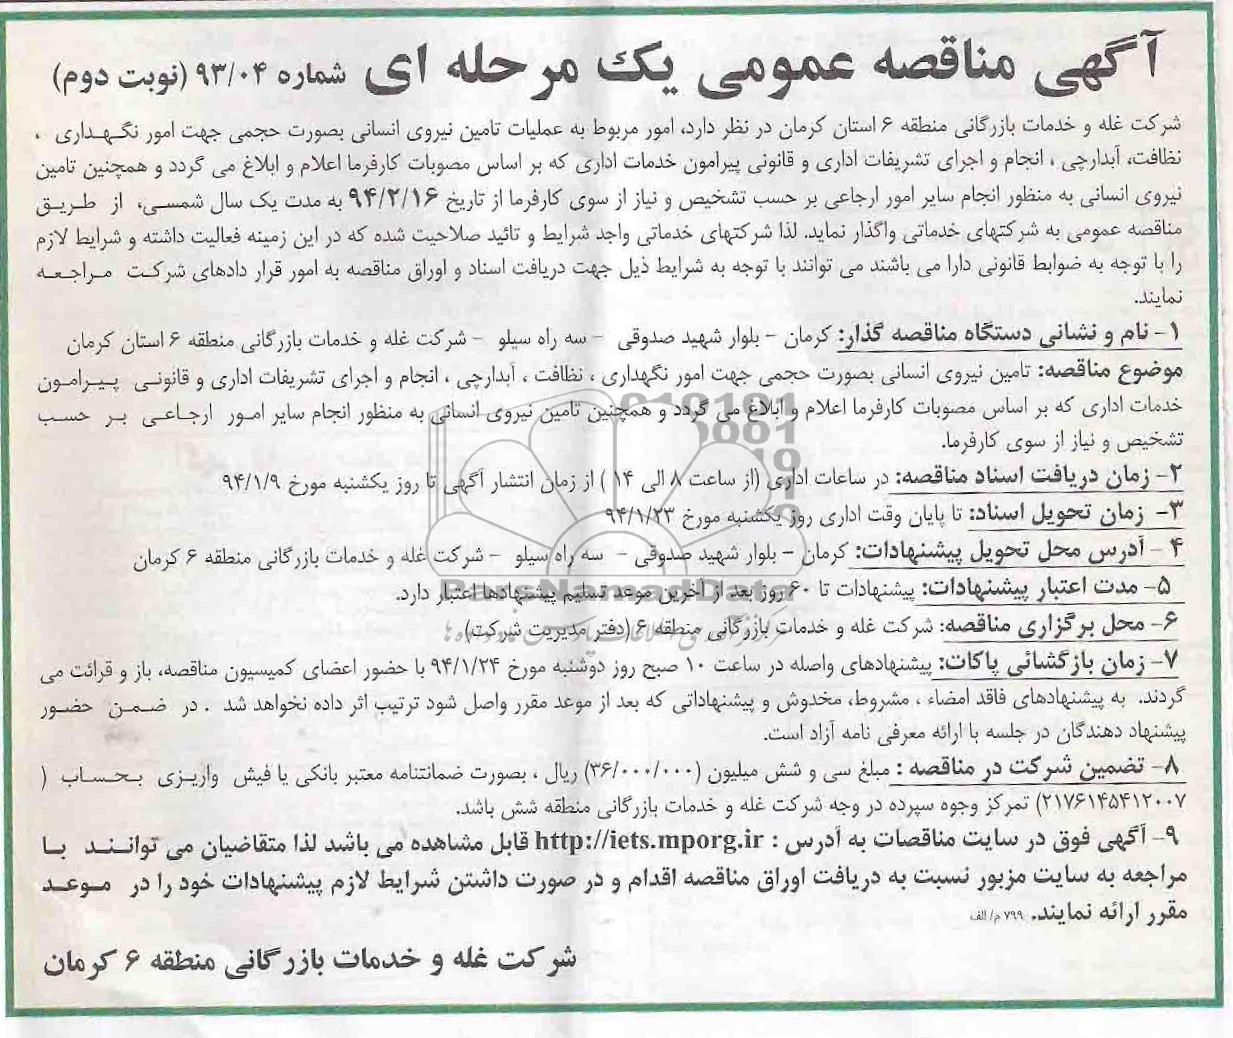 آگهی مناقصه عمومی یک مرحله ای شماره ۹۳/۰۴ (نوبت دوم)
شرکت غله و خدمات بازرگانی منطقه ۶ استان کرمان در نظر دارد، امور مربوط به عملیات تامین نیروی انسانی بصورت حجمی جهت امور نگهداری ،
نظافت، آبدارچی ، انجام و اجرای تشریفات اداری و قانونی پیرامون خدمات اداری که بر اساس مصوبات کارفرما اعلام و ابلاغ می گردد و همچنین تامین
نیروی انسانی به منظور انجام سایر امور ارجاعی بر حسب تشخیص و نیاز از سوی کارفرما از تاریخ ۹۴/۲/۱۶ به مدت یک سال شمسی، از طریق
مناقصه عمومی به شرکتهای خدماتی واگذار نماید. لذا شرکتهای خدماتی واجد شرایط و تائید صلاحیت شده که در این زمینه فعالیت داشته و شرایط لازم
را با توجه به ضوابط قانونی دارا می باشند می توانند با توجه به شرایط ذیل جهت دریافت اسناد و اوراق مناقصه به امور قرار دادهای شرکت مراجعه
نمایند.
۱- نام و نشانی دستگاه مناقصه گذار: کرمان – بلوار شهید صدوقی – سه راه سیلو – شرکت غله و خدمات بازرگانی منطقه ۶ استان کرمان
موضوع مناقصه: تامین نیروی انسانی بصورت حجمی جهت امور نگهداری ، نظافت ، آبدارچی ، انجام و اجرای تشریفات اداری و قانونی پیرامون
خدمات اداری که بر اساس مصوبات کارفرما اعلام و ابلاغ می گردد و همچنین تامین نیروی انسانی به منظور انجام سایر امور ارجاعی بر حسب
تشخیص و نیاز از سوی کارفرما.
۲- زمان دریافت اسناد مناقصه: در ساعات اداری (از ساعت ۸ الی ۱۴ ) از زمان انتشار آگهی تا روز یکشنبه مورخ ۹۴/۱/۹
۳- زمان تحویل اسناد: تا پایان وقت اداری روز یکشنبه مورخ ۹۴/۱/۲۳
۴ - آدرس محل تحویل پیشنهادات: کرمان – بلوار شهید صدوقی – سه راه سیلو – شرکت غله و خدمات بازرگانی منطقه ۶ کرمان
۵- مدت اعتبار پیشنهادات: پیشنهادات تا ۶۰ روز بعد از آخرین موعد تسلیم پیشنهادها اعتبار دارد.
ParsNamadData
۶- محل برگزاری مناقصه: شرکت غله و خدمات بازرگانی منطقه ۶ (دفتر مدیریت شرکت)
۷- زمان بازگشائی پاکات: پیشنهادهای واصله در ساعت ۱۰ صبح روز دوشنبه مورخ ۹۴/۱/۲۴ با حضور اعضای کمیسیون مناقصه، باز و قرائت می
گردند. به پیشنهادهای فاقد امضاء ، مشروط، مخدوش و پیشنهاداتی که بعد از موعد مقرر واصل شود ترتیب اثر داده نخواهد شد . در ضمن حضور
پیشنهاد دهندگان در جلسه با ارائه معرفی نامه آزاد است.
۸- تضمین شرکت در مناقصه : مبلغ سی و شش میلیون (۳۶/۰۰۰/۰۰۰) ریال ، بصورت ضمانتنامه معتبر بانکی یا فیش واریزی بحساب (
۲۱۷۶۱۴۵۴۱۲۰۰۷) تمرکز وجوه سپرده در وجه شرکت غله و خدمات بازرگانی منطقه شش باشد.
۹- آگهی فوق در سایت مناقصات به آدرس : http://iets.mporg.ir قابل مشاهده می باشد لذا متقاضیان می توانند با
مراجعه به سایت مزبور نسبت به دریافت اوراق مناقصه اقدام و در صورت داشتن شرایط لازم پیشنهادات خود را در موعد
مقرر ارائه نمایند. ۷۹۹ م/الف
شرکت غله و خدمات بازرگانی منطقه ۶ کرمان